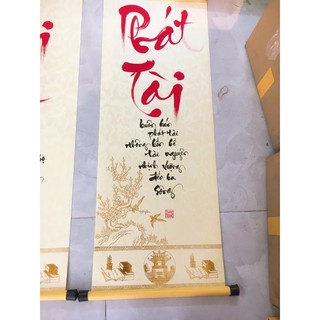 Phát
Tài
buôn bán
phát tài
bốn bể
tài nguyên
thịnh vượng
đến ba
sông